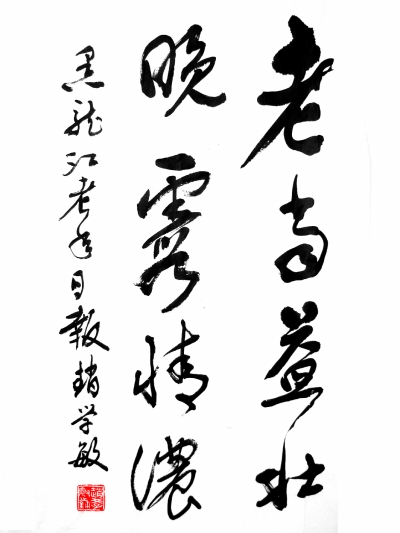 老当益壮
晚霞情濃
黑龙江老年日報趙学敏